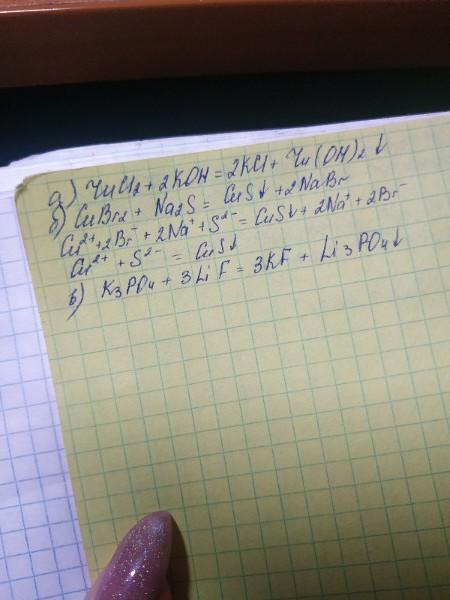 а) ZnCl₂ + 2KOH = 2KCl + Zn(OH)₂↓
б) CuBr₂ + Na₂S = CuS↓ + 2NaBr
Cu²⁺ + 2Br⁻ + 2Na⁺ + S²⁻ = CuS↓ + 2Na⁺ + 2Br⁻
Cu²⁺ + S²⁻ = CuS↓
в) K₃PO₄ + 3LiF = 3KF + Li₃PO₄↓